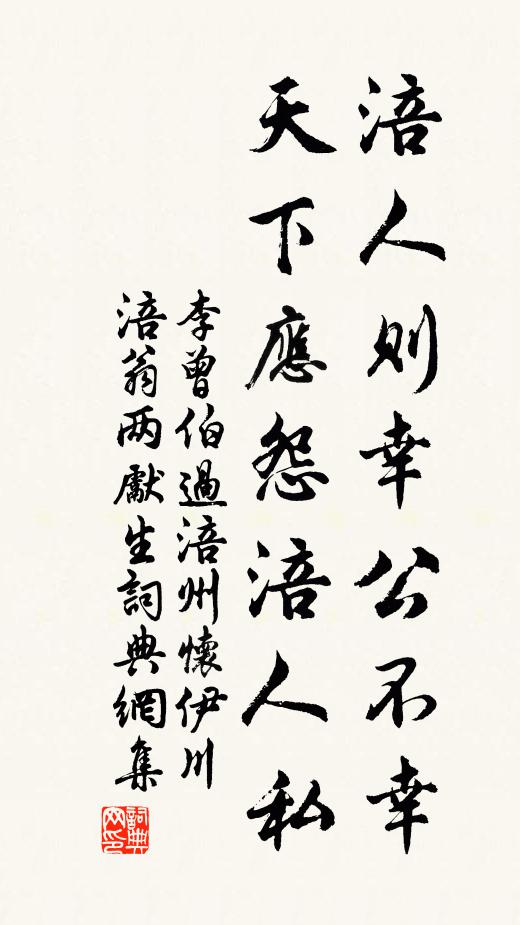 涪人則幸公不幸
天下應怨涪人私
李曾伯過涪州懷伊川
涪翁两獻生詞典網集
詞典網印